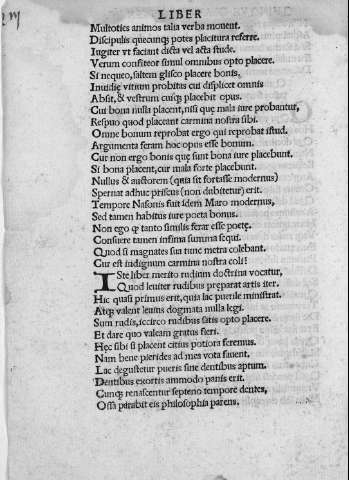 LIBER
Multoties animos talia verba mouent.
Discipulis quecunq; potes placitura referre.
Iugiter vt faciant dicta vel acta stude.
Verum confiteor simul omnibus opto placere.
Si nequeo, saltem glisco placere bonis,
Inuidię vitium probitas cui displicet omnis
Absit, & vestrum cuiq; placebit opus.
Cui bona nulla placent, nisi quę mala iure probantur,
Respuo quod placeant carmina nostra sibi.
Omne bonum reprobat ergo qui reprobat istud.
Argumenta feram hoc opus esse bonum.
Cur non ergo bonis quę sunt bona iure placebunt.
Si bona placent, cur mala forte placebunt.
Nullus & auctorem (quia sit fortasse modernus)
Spernat adhuc priscus (non dubitetur) erit.
Tempore Nasonis fuit idem Maro modernus,
Sed tamen habitus iure poeta bonus.
Non ego q; tanto similis ferar esse poetę.
Consuere tamen infima summa sequi.
Quod si magnates sua tunc metra colebant.
Cur est indignum carmina nostra coli!
ISte liber merito rudium doctrina vocatur,
Quod leuiter rudibus preparat artis iter.
Hic quasi primus erit, quia lac puerile ministrat.
Atq; valent leuius dogmata nulla legi.
Sum rudis, iccirco rudibus satis opto placere.
Et dare quo valeam gratus fieri.
Hęc sibi si placent citius potiora feremus.
Nam bene pierides ad mea vota fauent,
Lac degustetur pueris sine dentibus aptum.
Dentibus exortis ammodo panis erit.
Cunq; renascentur septeno tempore dentes,
Ossa parabit eis philosophia parens.